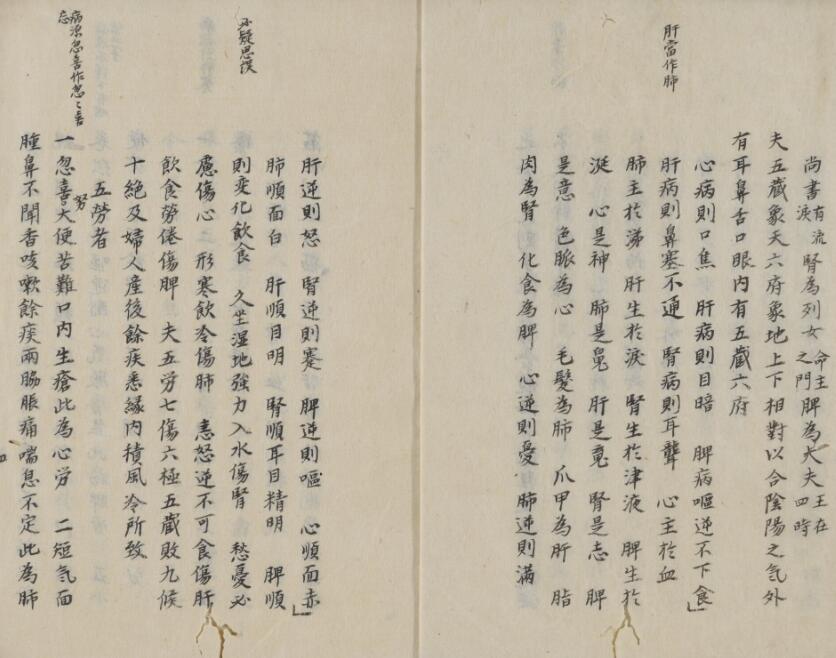 肝當作肺
尚書有流淚腎為列女命主之門脾為大夫王在四時
夫五藏象天六府象地上下相對以合陰陽之气外
有耳鼻舌口眼内有五藏六府
心病則口焦 肝病則目暗 脾病嘔逆不下食
肝病則鼻塞不通 腎病則耳聾 心主於血
肺主於涕 肝生於淚 腎生於津液 脾生於
涎 心是神 肺是鬼 肝是䰟 腎是志 脾
是意 色脈為心 毛髮為肺 爪甲為肝 脂
肉為腎 化食為脾 心逆則憂 肺逆則滿
肝逆則怒 腎逆則蹇 脾逆則嘔 心順面赤
肺順面白 肝順目明 腎順耳目精明 脾順
必疑思誤
則变化飲食 久坐湿地強力入水傷腎 愁憂必
慮傷心 二形寒飲冷傷肺 恚怒逆不可食傷肝
飲食勞倦傷脾 夫五労七傷六極五藏敗九候
十絶及婦人産後餘疾悉縁内積風冷所致
五勞者
病源忽喜作忽〻喜忘
一忽喜努大便苦難口内生瘡此為心労 二短気面
腫鼻不聞香咳嗽餘痰兩脇脹痛喘息不定此為肺